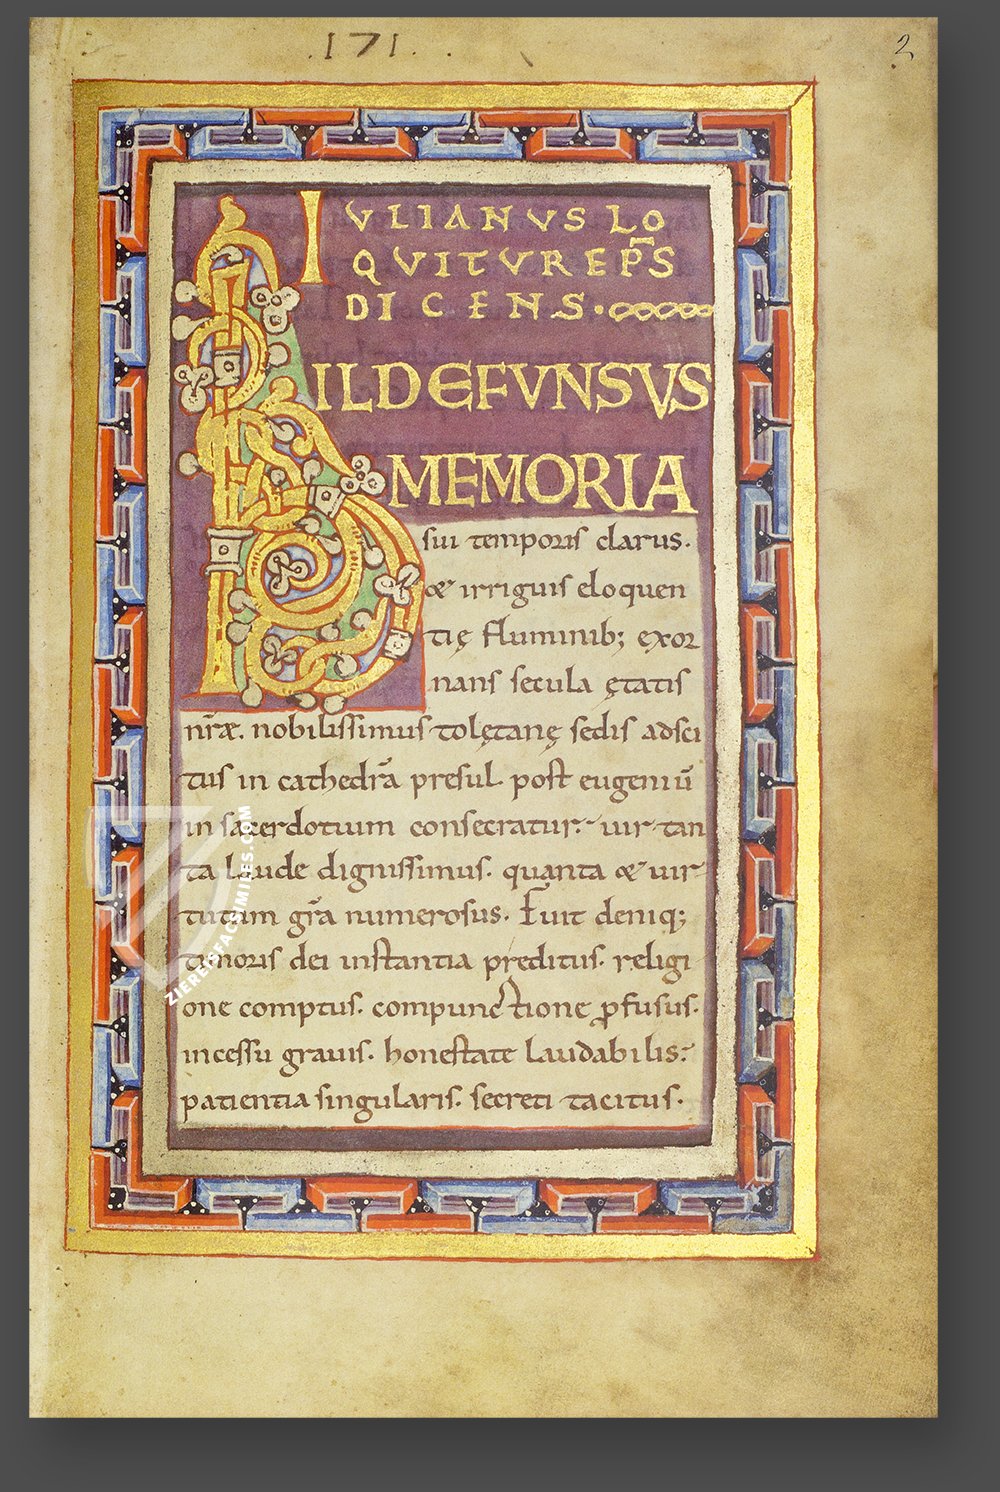 .171.
2
IVLIANVS LO
QVITVR EPS
DICENS.
HILDEFVNSVS
MEMORIA
sui temporis clarus.
& irriguis eloquen
tię fluminib; exor
nans secula ętatis
nræ. nobilissimus tolętanę sedis adsci
tus in cathedra presul. post eugeniū
in sacerdotium consecratur. uir tan
ta laude dignissimus. quanta & uir
tutum gra numerosus. Fuit deniq;
timoris dei instantia preditus. religi
one comptus. compunctione ꝓfusus.
incessu grauis. honestate laudabilis.
patientia singularis. secreti tacitus.
ZIEREISFACSIMILES.COM